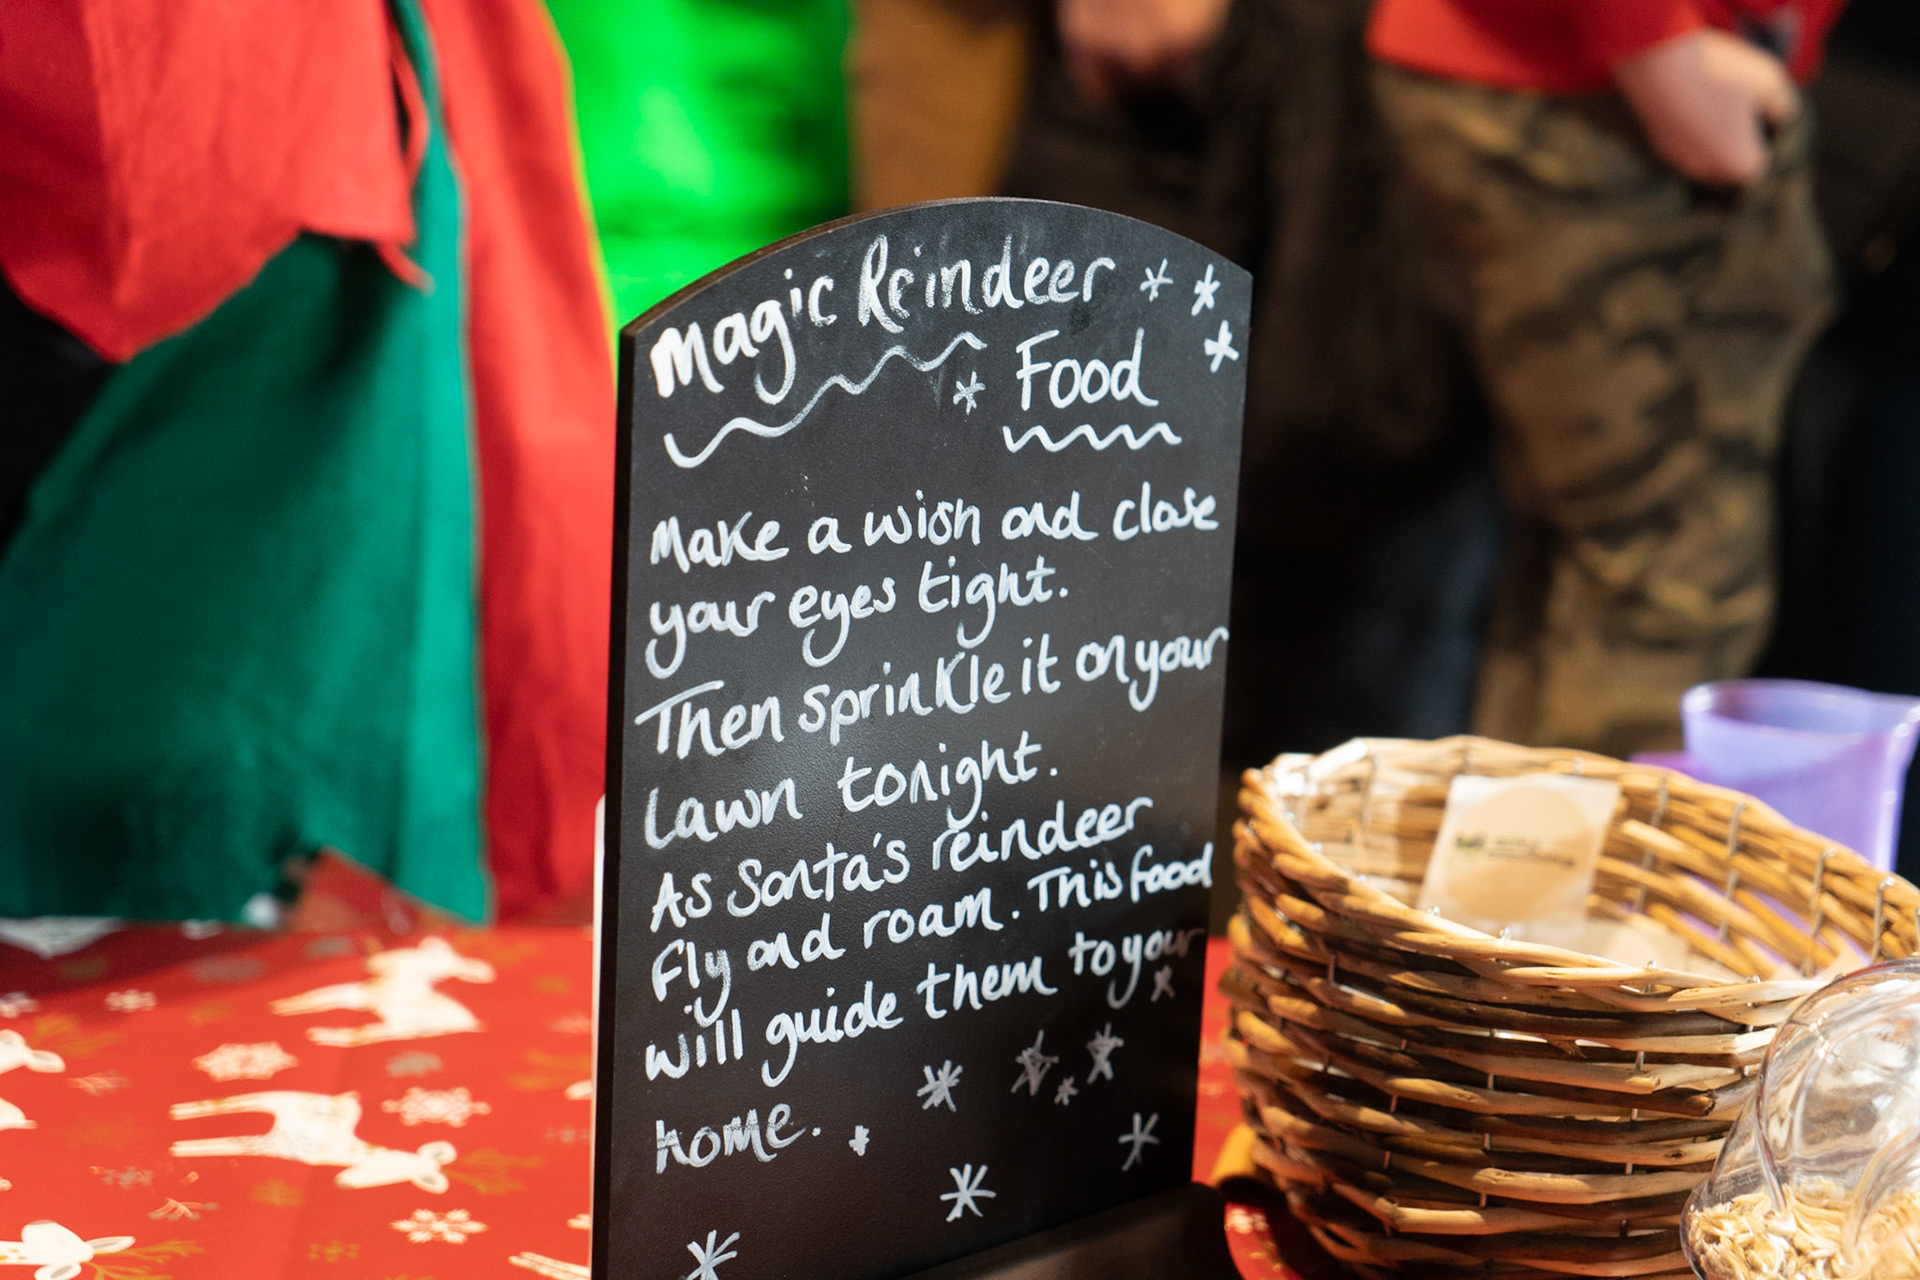 Magic Reindeer
Food
Make a wish and close
your eyes tight.
Then sprinkle it on your
Lawn tonight.
As Santa's reindeer
fly and roam. This food
will guide them to your
home.